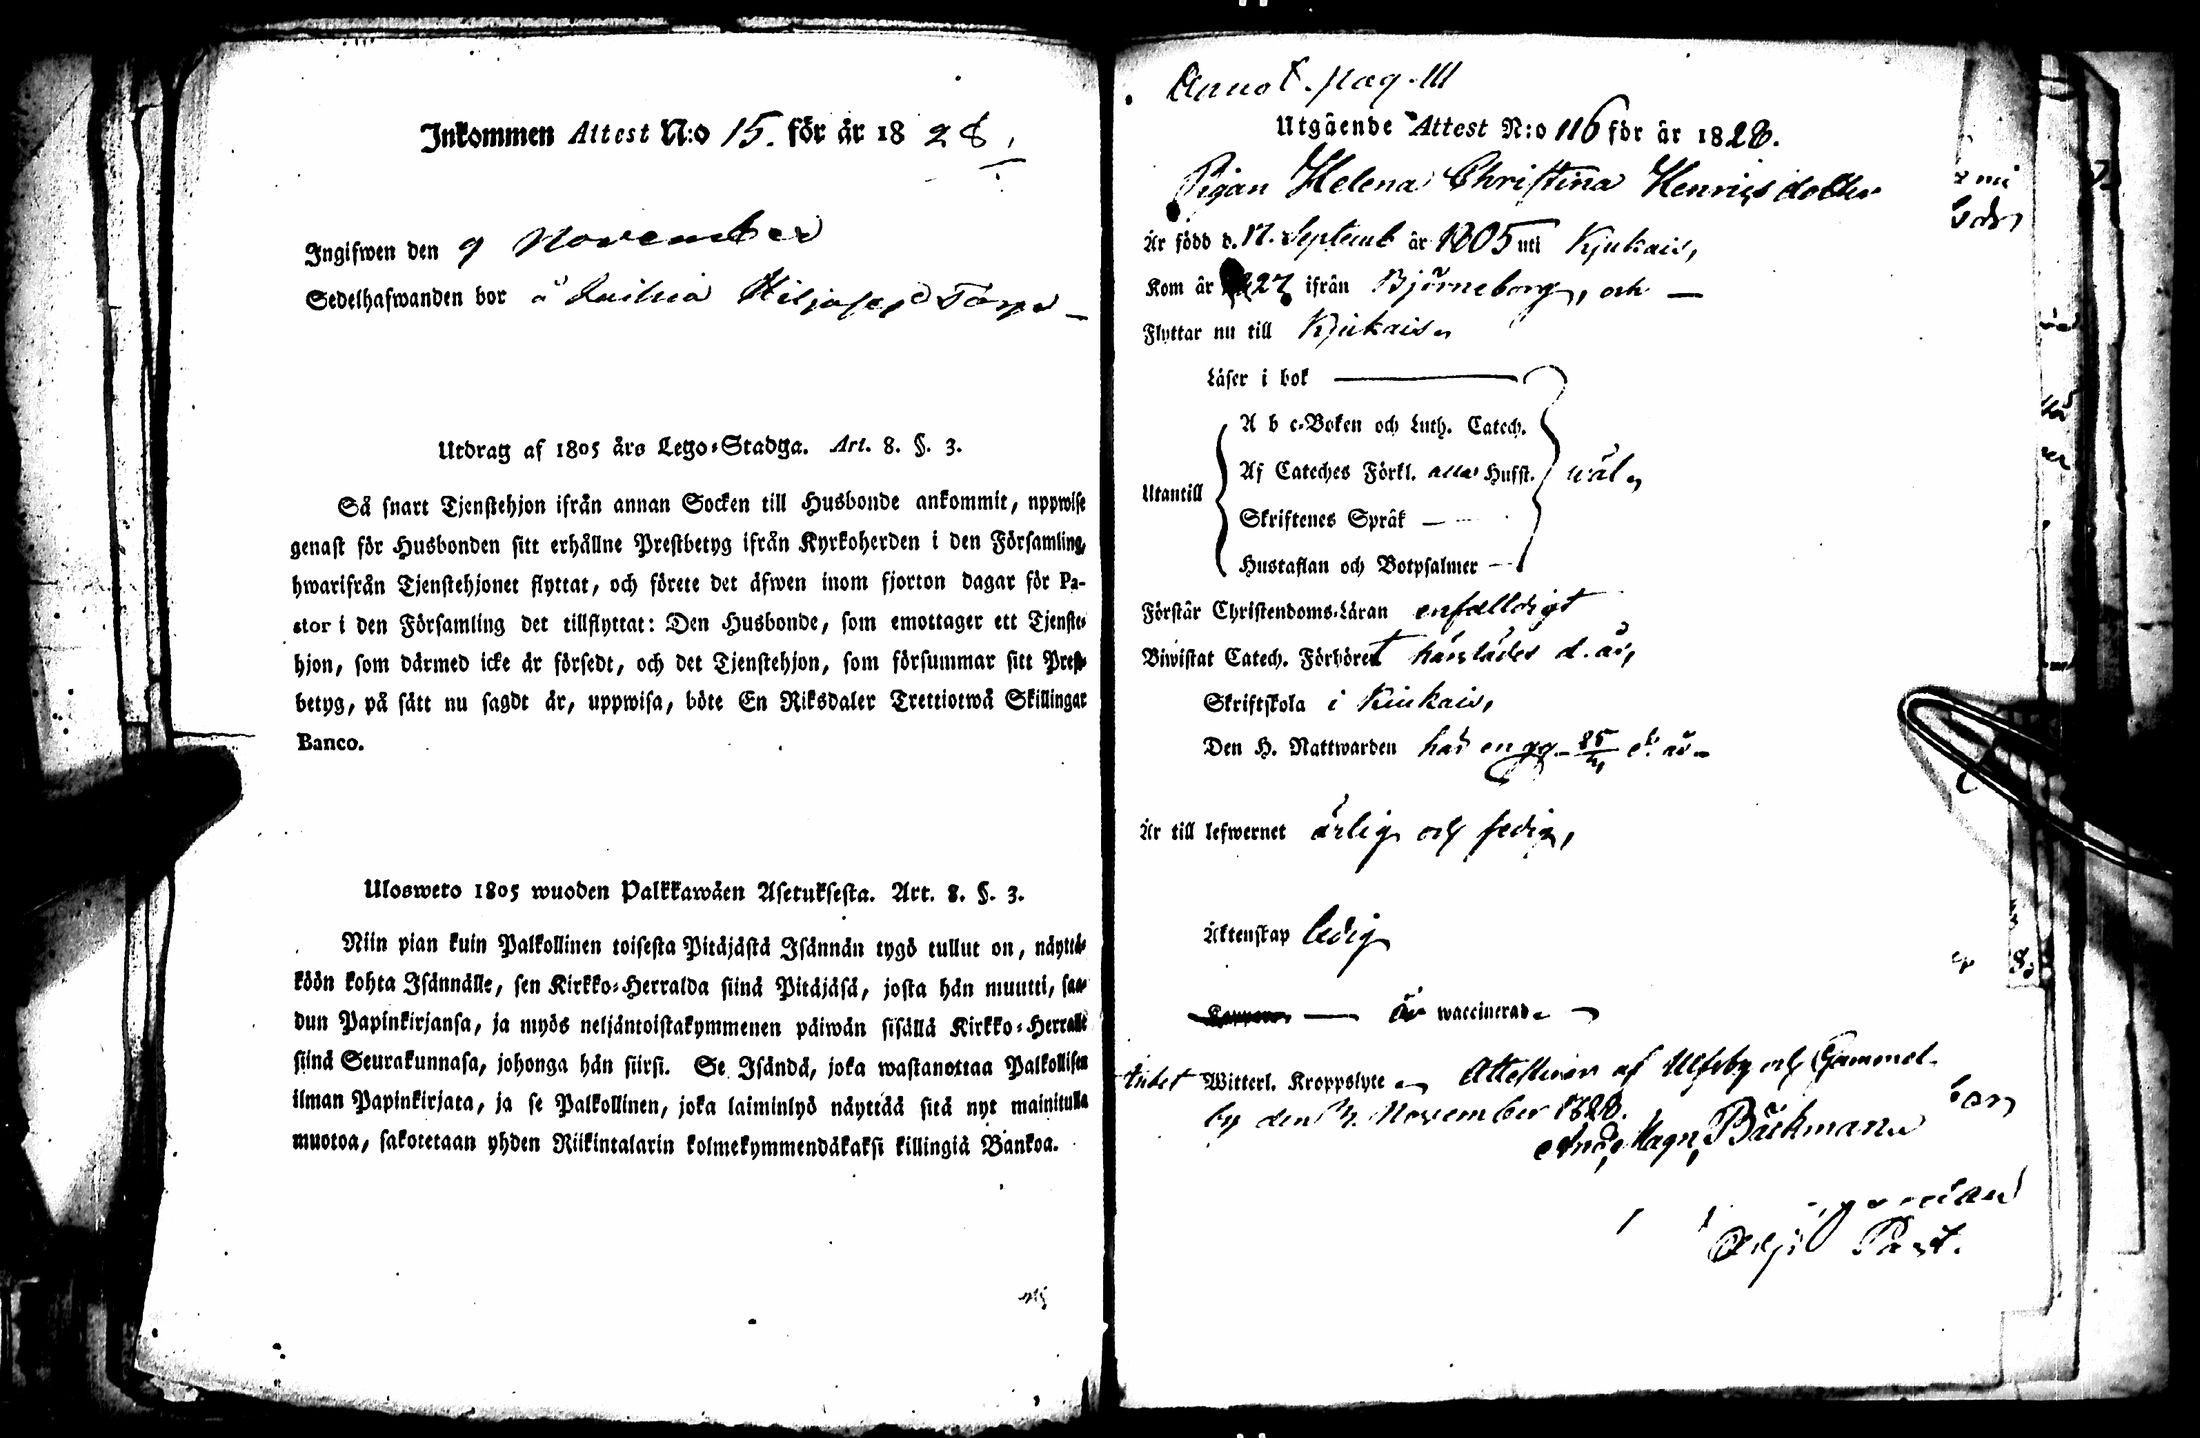 Inkommen Attest N:o 15. för år 1828,
Ingifwen den 9 November
Sedelhafwanden bor å Torp
Utdrag af 1805 års Lego-Stadga. Art. 8. §. 3.
Så snart Tjenstehjon ifrån annan Socken till Husbonde ankommit, uppwise
genast för Husbonden sitt erhållne Prestbetyg ifrån Kyrkoherden i den Församling,
hwarifrån Tjenstehjonet flyttat, och förete det äfwen inom fjorton dagar för Pa-
stor i den Församling det tillflyttat: Den Husbonde, som emottager ett Tjenste-
hjon, som därmed icke är försedt, och det Tjenstehjon, som försummar sitt Prest-
betyg, på sätt nu sagdt är, uppwisa, böte En Riksdaler Trettiotwå Skillingar
Banco.
Ulosweto 1805 wuoden Palkkawäen Asetuksesta. Art. 8. §. 3.
Niin pian kuin Palkollinen toisesta Pitäjästä Isännän tygö tullut on, näyttä-
köön kohta Isännälle, sen Kirkko-Herralda siinä Pitäjäsä, josta hän muutti, saa-
dun Papinkirjansa, ja myös neljäntoistakymmenen päiwän sisällä Kirkko-Herralle
siinä Seurakunnasa, johonga hän siirsi. Se Isändä, joka wastanottaa Palkollisen
ilman Papinkirjata, ja se Palkollinen, joka laiminlyö näyttää sitä nyt mainitulla
muotoa, sakotetaan yhden Riikintalarin kolmekymmendäkaksi killingiä Bankoa.
Annot. pag. 111
Utgående Attest N:o 116 för år 1828.
Pigan Helena Christina Henricsdotter
Är född d. 17. Septemb år 1805 uti Kjukais,
Kom år 1827 ifrån Björneborg, och —
Flyttar nu till Kjukais.
Läser i bok —
A b c-Boken och Luth. Catech.
Af Cateches Förkl. alla Hufst. wäl
Utantill
Skriftenes Språk —
Hustaflan och Botpsalmer —
Förstår Christendoms-Läran enfalldigt
Biwistat Catech. Förhöret härstädes d. år,
Skriftskola i Kiukais,
Den H. Nattwarden här en gg d. år
Är till lefwernet ärlig och fredig,
Äktenskap ledig
Koppor — är waccinerad
Intet Witterl. Kroppslyte Attesteras af Ulfsby och Gammel-
by den November 1828.
And. Magn. Bäckman
Past.